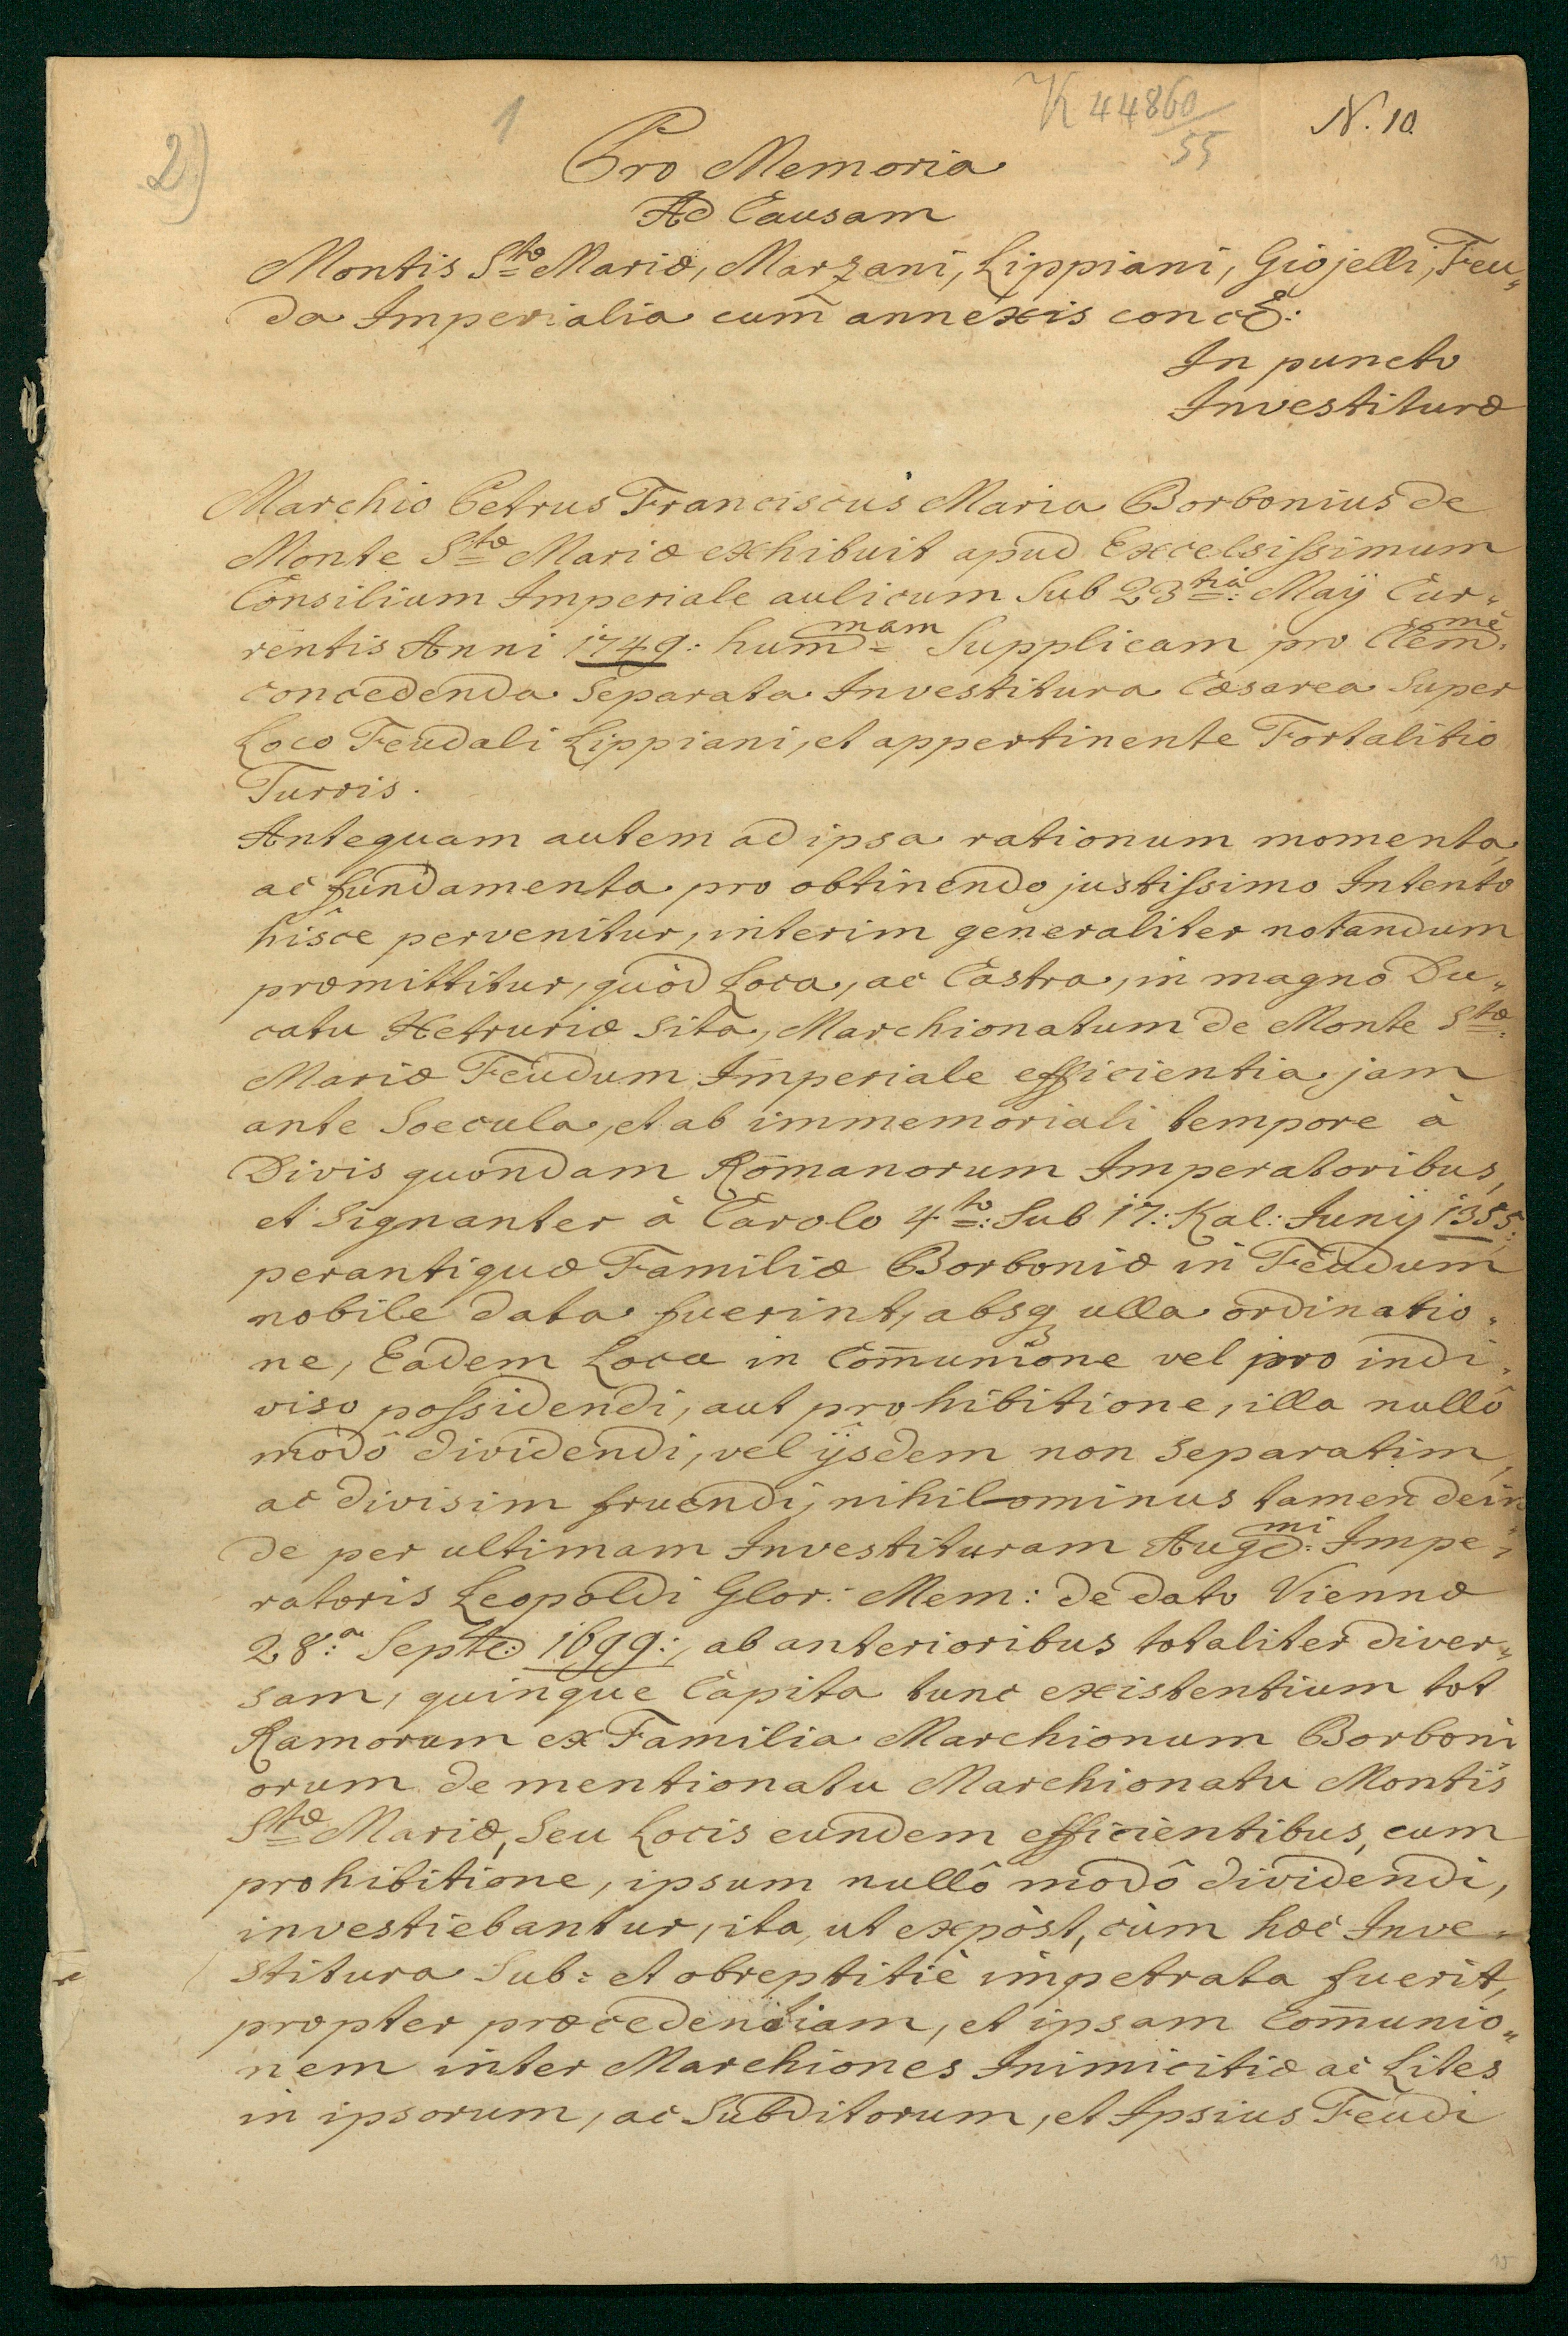 2)
1
K 44860/55
N. 10.
Pro Memoria
Ad Causam
Montis Stæ Mariæ, Marzani, Lippiani, Giojelli, Feu„
da Imperialia cum annexis
In puncto
Investituræ
Marchio Petrus Franciscus Maria Borbonius de
Monte Stæ Mariæ exhibuit apud Excelsissimum
Consilium Imperiale aulicum Sub 23tia: Maÿ Cur„
rentis Anni 1749: hummam Supplicam pro Clemmè
concedenda Separata Investitura Cæsarea Super
Loco Feudali Lippiani, et appertinente Fortalitio
Turris.
Antequam autem ad ipsa rationum momenta,
ac fundamenta pro obtinendo justissimo Intento
hisce pervenitur, interim generaliter notandum
præmittitur, quòd Loca, ac Castra, in magno Du„
catu Hetruriæ Sita, Marchionatum de Monte Stæ
Mariæ Feudum Imperiale efficientia, jam
ante Soecula, et ab immemoriali tempore à
Divis quondam Romanorum Imperatoribus,
et Signanter à Carolo 4to: Sub 17: Kal: Junÿ 1355:,
perantiquæ Familiæ Borboniæ in Feudum
nobile data fuerint, absq ulla ordinatio„
ne, Eadem Loca in Com̄unione vel pro indi„
viso possidendi, aut prohibitione, illa nullô
modô dividendi, vel ijsdem non Separatim,
ac divisim fruendi, nihilominus tamen dein„
de per ultimam Investituram Augmi: Impe„
ratoris Leopoldi Glor: Mem: de dato Viennæ
28:a Septe: 1699:, ab anterioribus totaliter diver„
sam, quinque Capita tunc existentium tot
Ramorum ex Familia Marchionum Borboni
orum de mentionatu Marchionatu Montis
Stæ Mariæ, Seu Locis eundem efficientibus, cum
prohibitione, ipsum nullô modô dividendi,
investiebantur, ita, ut expòst, cùm hæc Inve„
stitura Sub= et obreptitiè impetrata fuerit,
propter præcedentiam, et ipsam Com̄unio„
nem inter Marchiones Inimicitiæ ac Lites
in ipsorum, ac Subditorum, et Ipsius Feudi
15